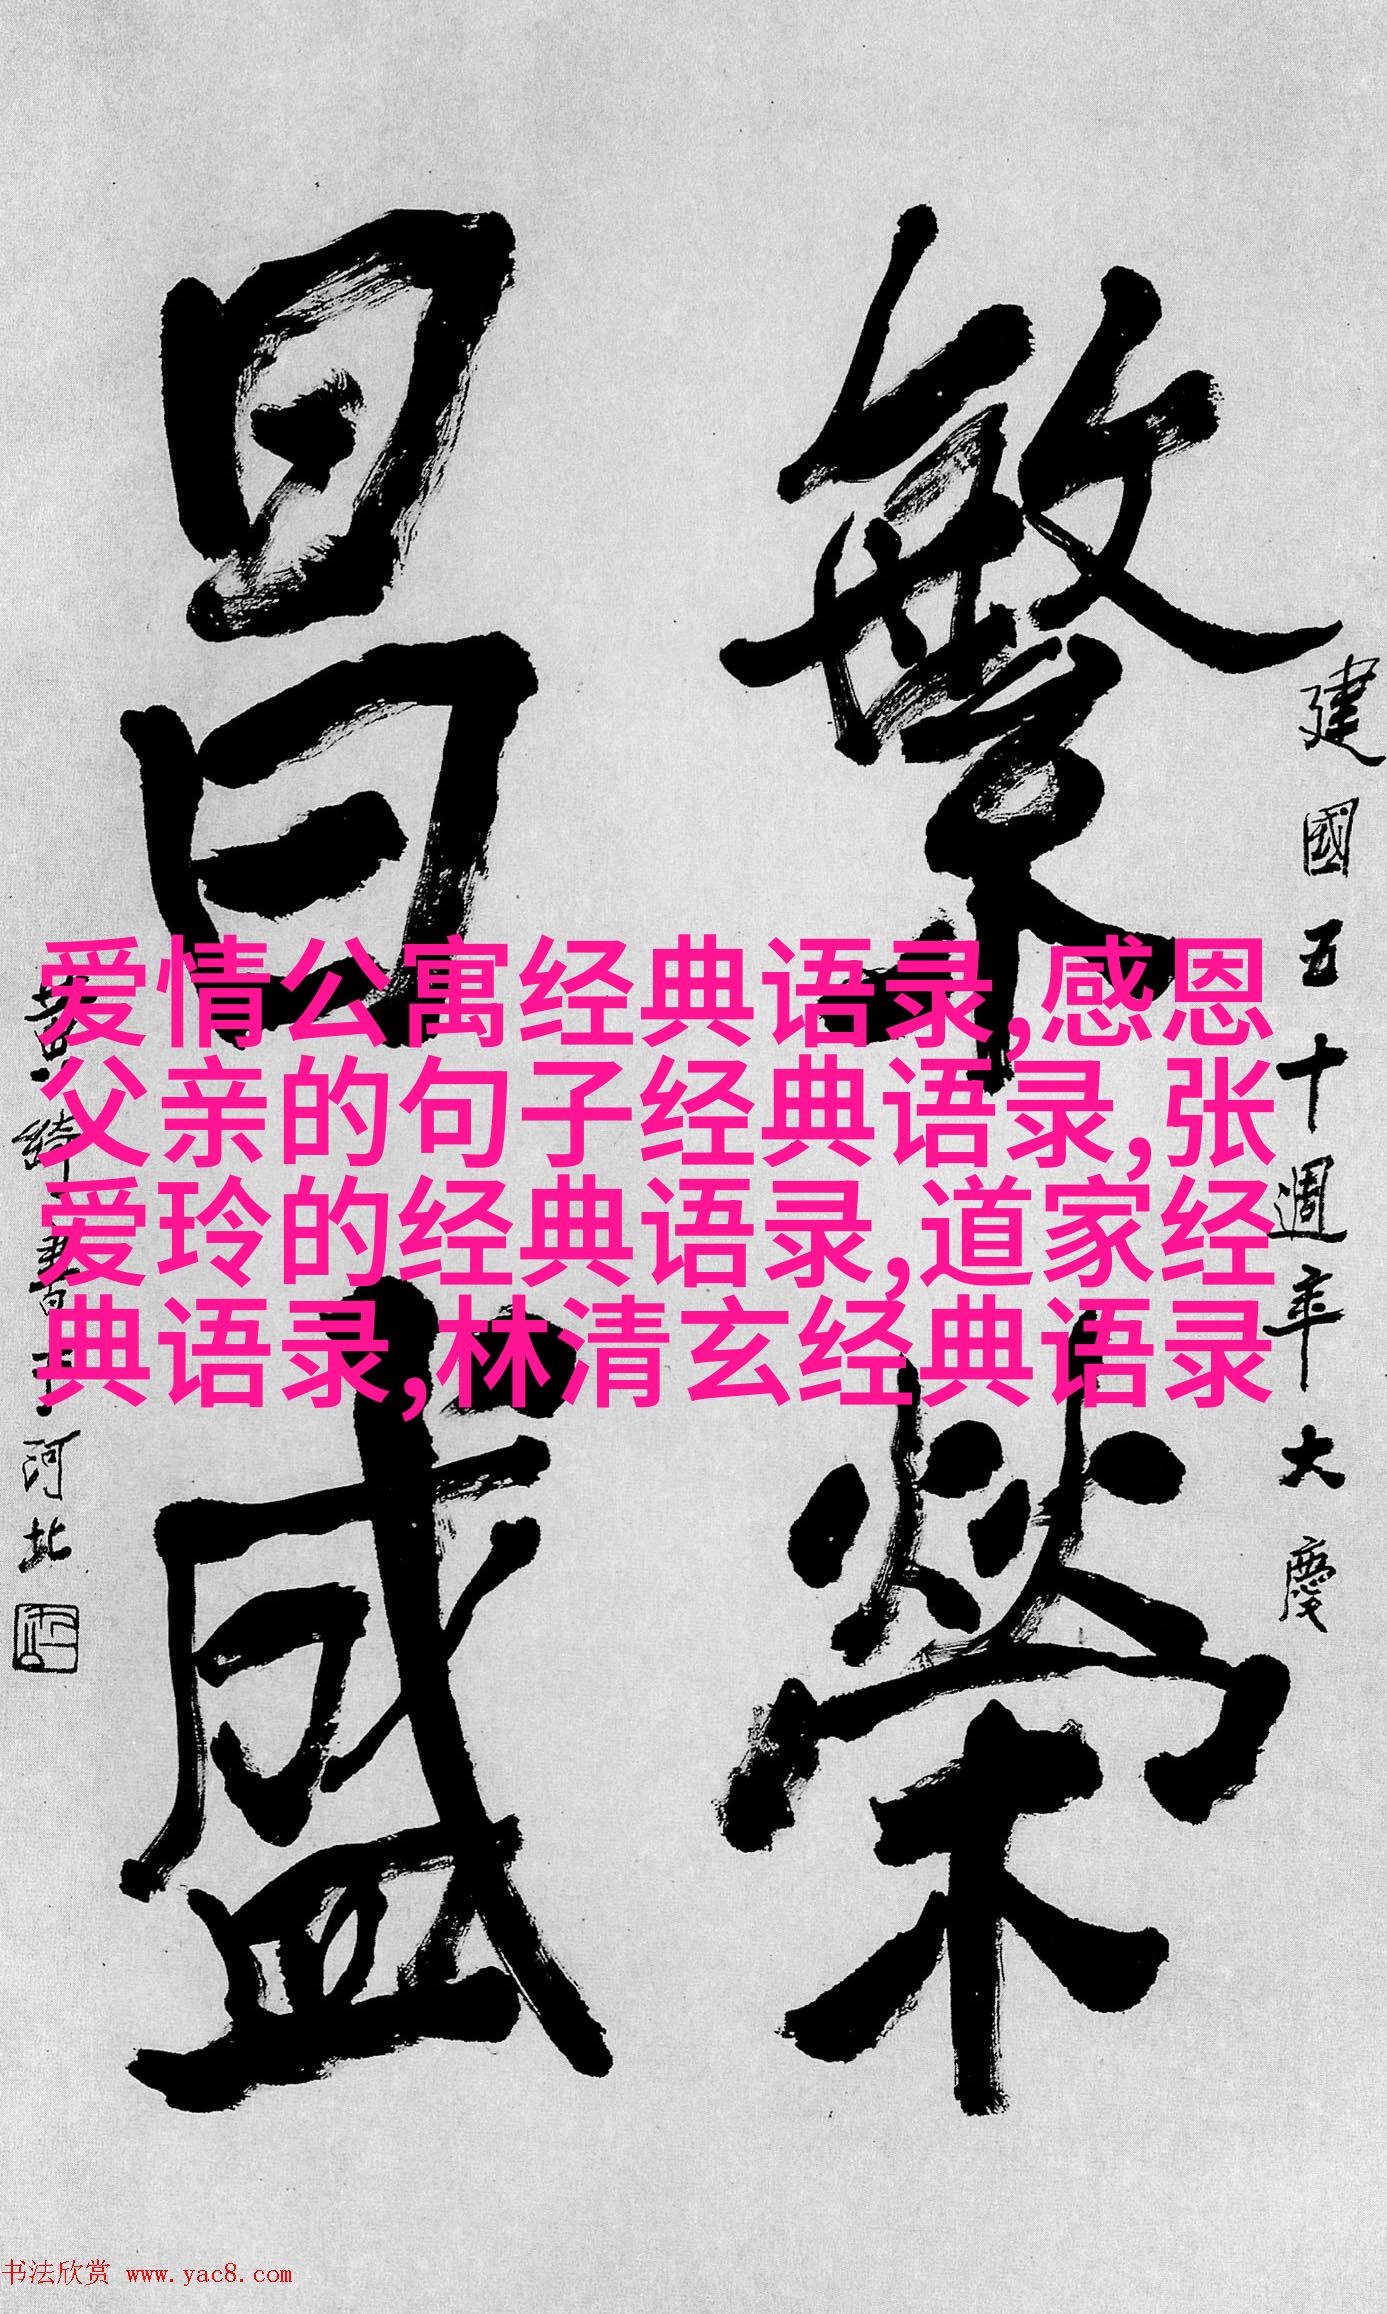 繁榮
昌盛
建國五十週年大慶
河北
爱情公寓经典语录,感恩
父亲的句子经典语录,张
爱玲的经典语录,道家经
典语录,林清玄经典语录
书法欣赏 www.yac8.com